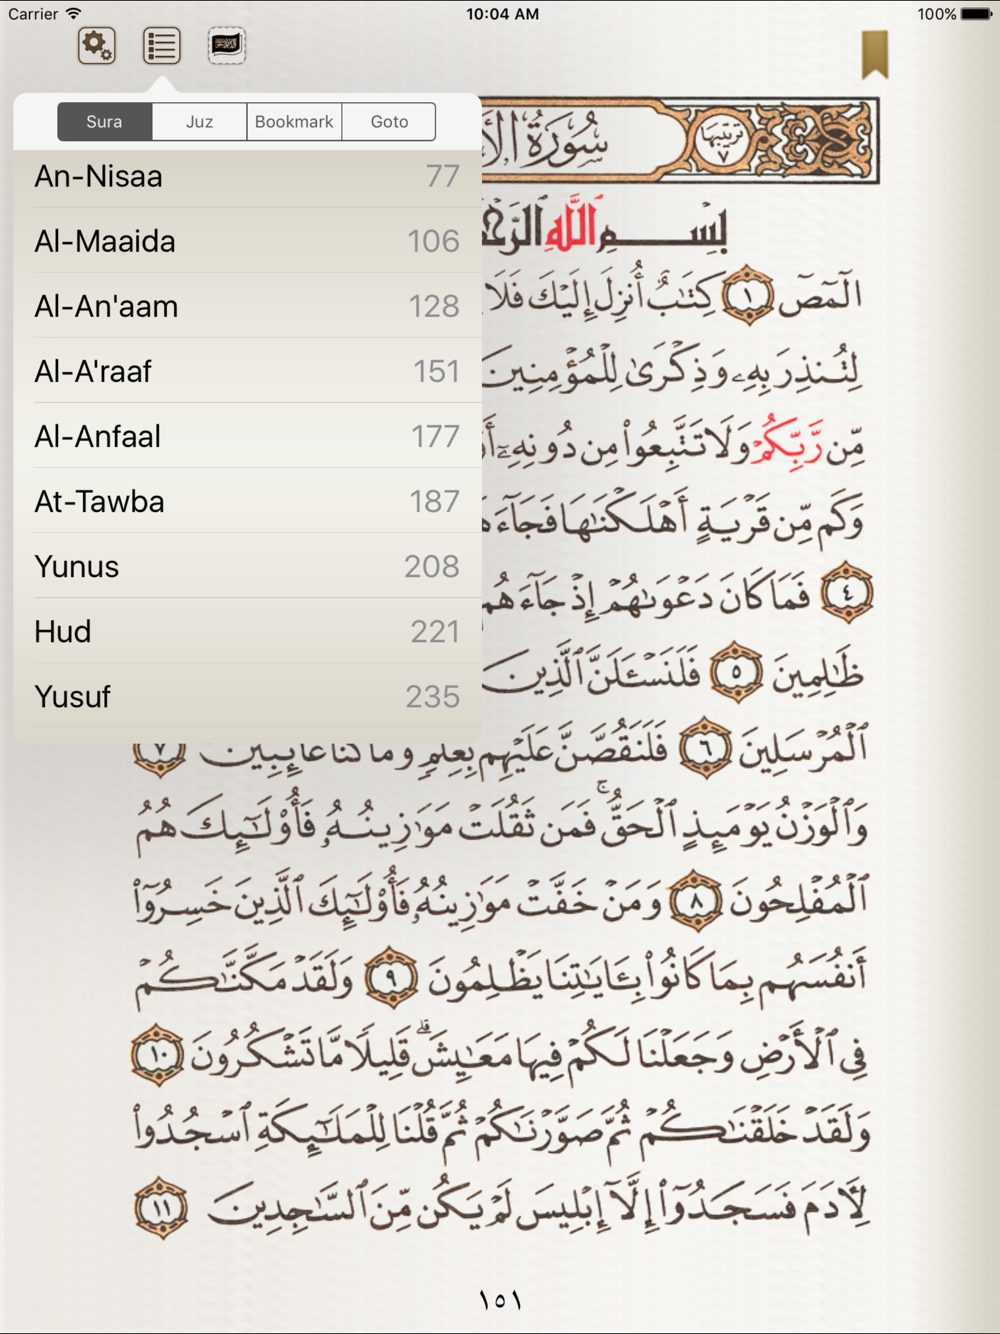 Carrier 10:04 AM 100%
Sura Juz Bookmark Goto
An-Nisaa 77
Al-Maaida 106
Al-An'aam 128
Al-A'raaf 151
Al-Anfaal 177
At-Tawba 187
Yunus 208
Hud 221
Yusuf 235
سُورَةُ ترتيبها ٧
بِسْمِ ٱللَّهِ
الٓمٓصٓ ١ كِتَٰبٌ أُنزِلَ إِلَيْكَ فَلَا
لِتُنذِرَ بِهِۦ وَذِكْرَىٰ لِلْمُؤْمِنِينَ
مِّن رَّبِّكُمْ وَلَا تَتَّبِعُوا۟ مِن دُونِهِۦٓ
وَكَم مِّن قَرْيَةٍ أَهْلَكْنَٰهَا فَجَآءَ
٤ فَمَا كَانَ دَعْوَىٰهُمْ إِذْ جَآءَهُم
ظَٰلِمِينَ ٥ فَلَنَسْـَٔلَنَّ ٱلَّذِينَ
ٱلْمُرْسَلِينَ ٦ فَلَنَقُصَّنَّ عَلَيْهِم بِعِلْمٍ وَمَا كُنَّا غَآئِبِينَ ٧
وَٱلْوَزْنُ يَوْمَئِذٍ ٱلْحَقُّ ۚ فَمَن ثَقُلَتْ مَوَٰزِينُهُۥ فَأُو۟لَٰٓئِكَ هُمُ
ٱلْمُفْلِحُونَ ٨ وَمَنْ خَفَّتْ مَوَٰزِينُهُۥ فَأُو۟لَٰٓئِكَ ٱلَّذِينَ خَسِرُوٓا۟
أَنفُسَهُم بِمَا كَانُوا۟ بِـَٔايَٰتِنَا يَظْلِمُونَ ٩ وَلَقَدْ مَكَّنَّٰكُمْ
فِى ٱلْأَرْضِ وَجَعَلْنَا لَكُمْ فِيهَا مَعَٰيِشَ ۗ قَلِيلًا مَّا تَشْكُرُونَ ١٠
وَلَقَدْ خَلَقْنَٰكُمْ ثُمَّ صَوَّرْنَٰكُمْ ثُمَّ قُلْنَا لِلْمَلَٰٓئِكَةِ ٱسْجُدُوا۟
لِـَٔادَمَ فَسَجَدُوٓا۟ إِلَّآ إِبْلِيسَ لَمْ يَكُن مِّنَ ٱلسَّٰجِدِينَ ١١
١٥١